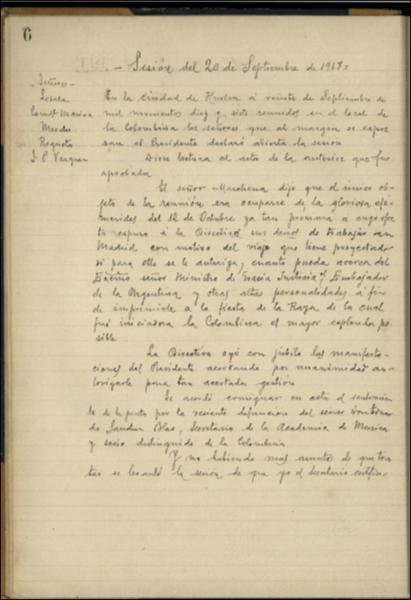 6
Sesión del 20 de Septiembre de 1917.
Señores
En la ciudad de Huelva a veinte de Septiembre de
mil novecientos diez y siete reunidos en el local de
la Colombina los señores que al margen se expre
san el Presidente declaró abierta la sesión
Diose lectura al acta de la anterior que fué
aprobada
El señor Marchena dijo que el único ob-
jeto de la reunión era ocuparse de la gloriosa efe-
mérides del 12 de Octubre ya tan próxima a cuyo efec
to expuso a la Directiva sus deseos de trabajar en
Madrid con motivo del viaje que tiene proyectado
si para ello se le autoriza, cuanto pueda acerca del
Excmo señor Ministro de Gracia y Justicia, Embajador
de la Argentina y otras altas personalidades a fin
de imprimirle a la fiesta de la Raza de la cual
fué iniciadora la Colombina el mayor esplendor po
sible
La Directiva oyó con júbilo las manifesta-
ciones del Presidente acordando por unanimidad au-
torizarle para tan acertada gestión
Se acordó consignar en acta el sentimien
to de la junta por la reciente defunción del señor
Secretario de la Academia de Música
y socio distinguido de la Colombina
Y no habiendo mas asuntos de que tra
tar se levantó la sesión de que yo el Secretario certifi-